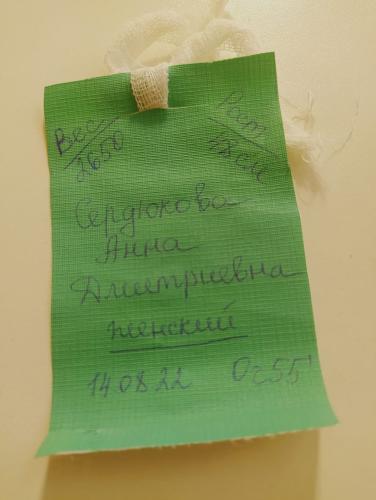 Вес Рост
2650 48см
Сердюкова
Анна
Дмитриевна
женский
140822 0ч55'